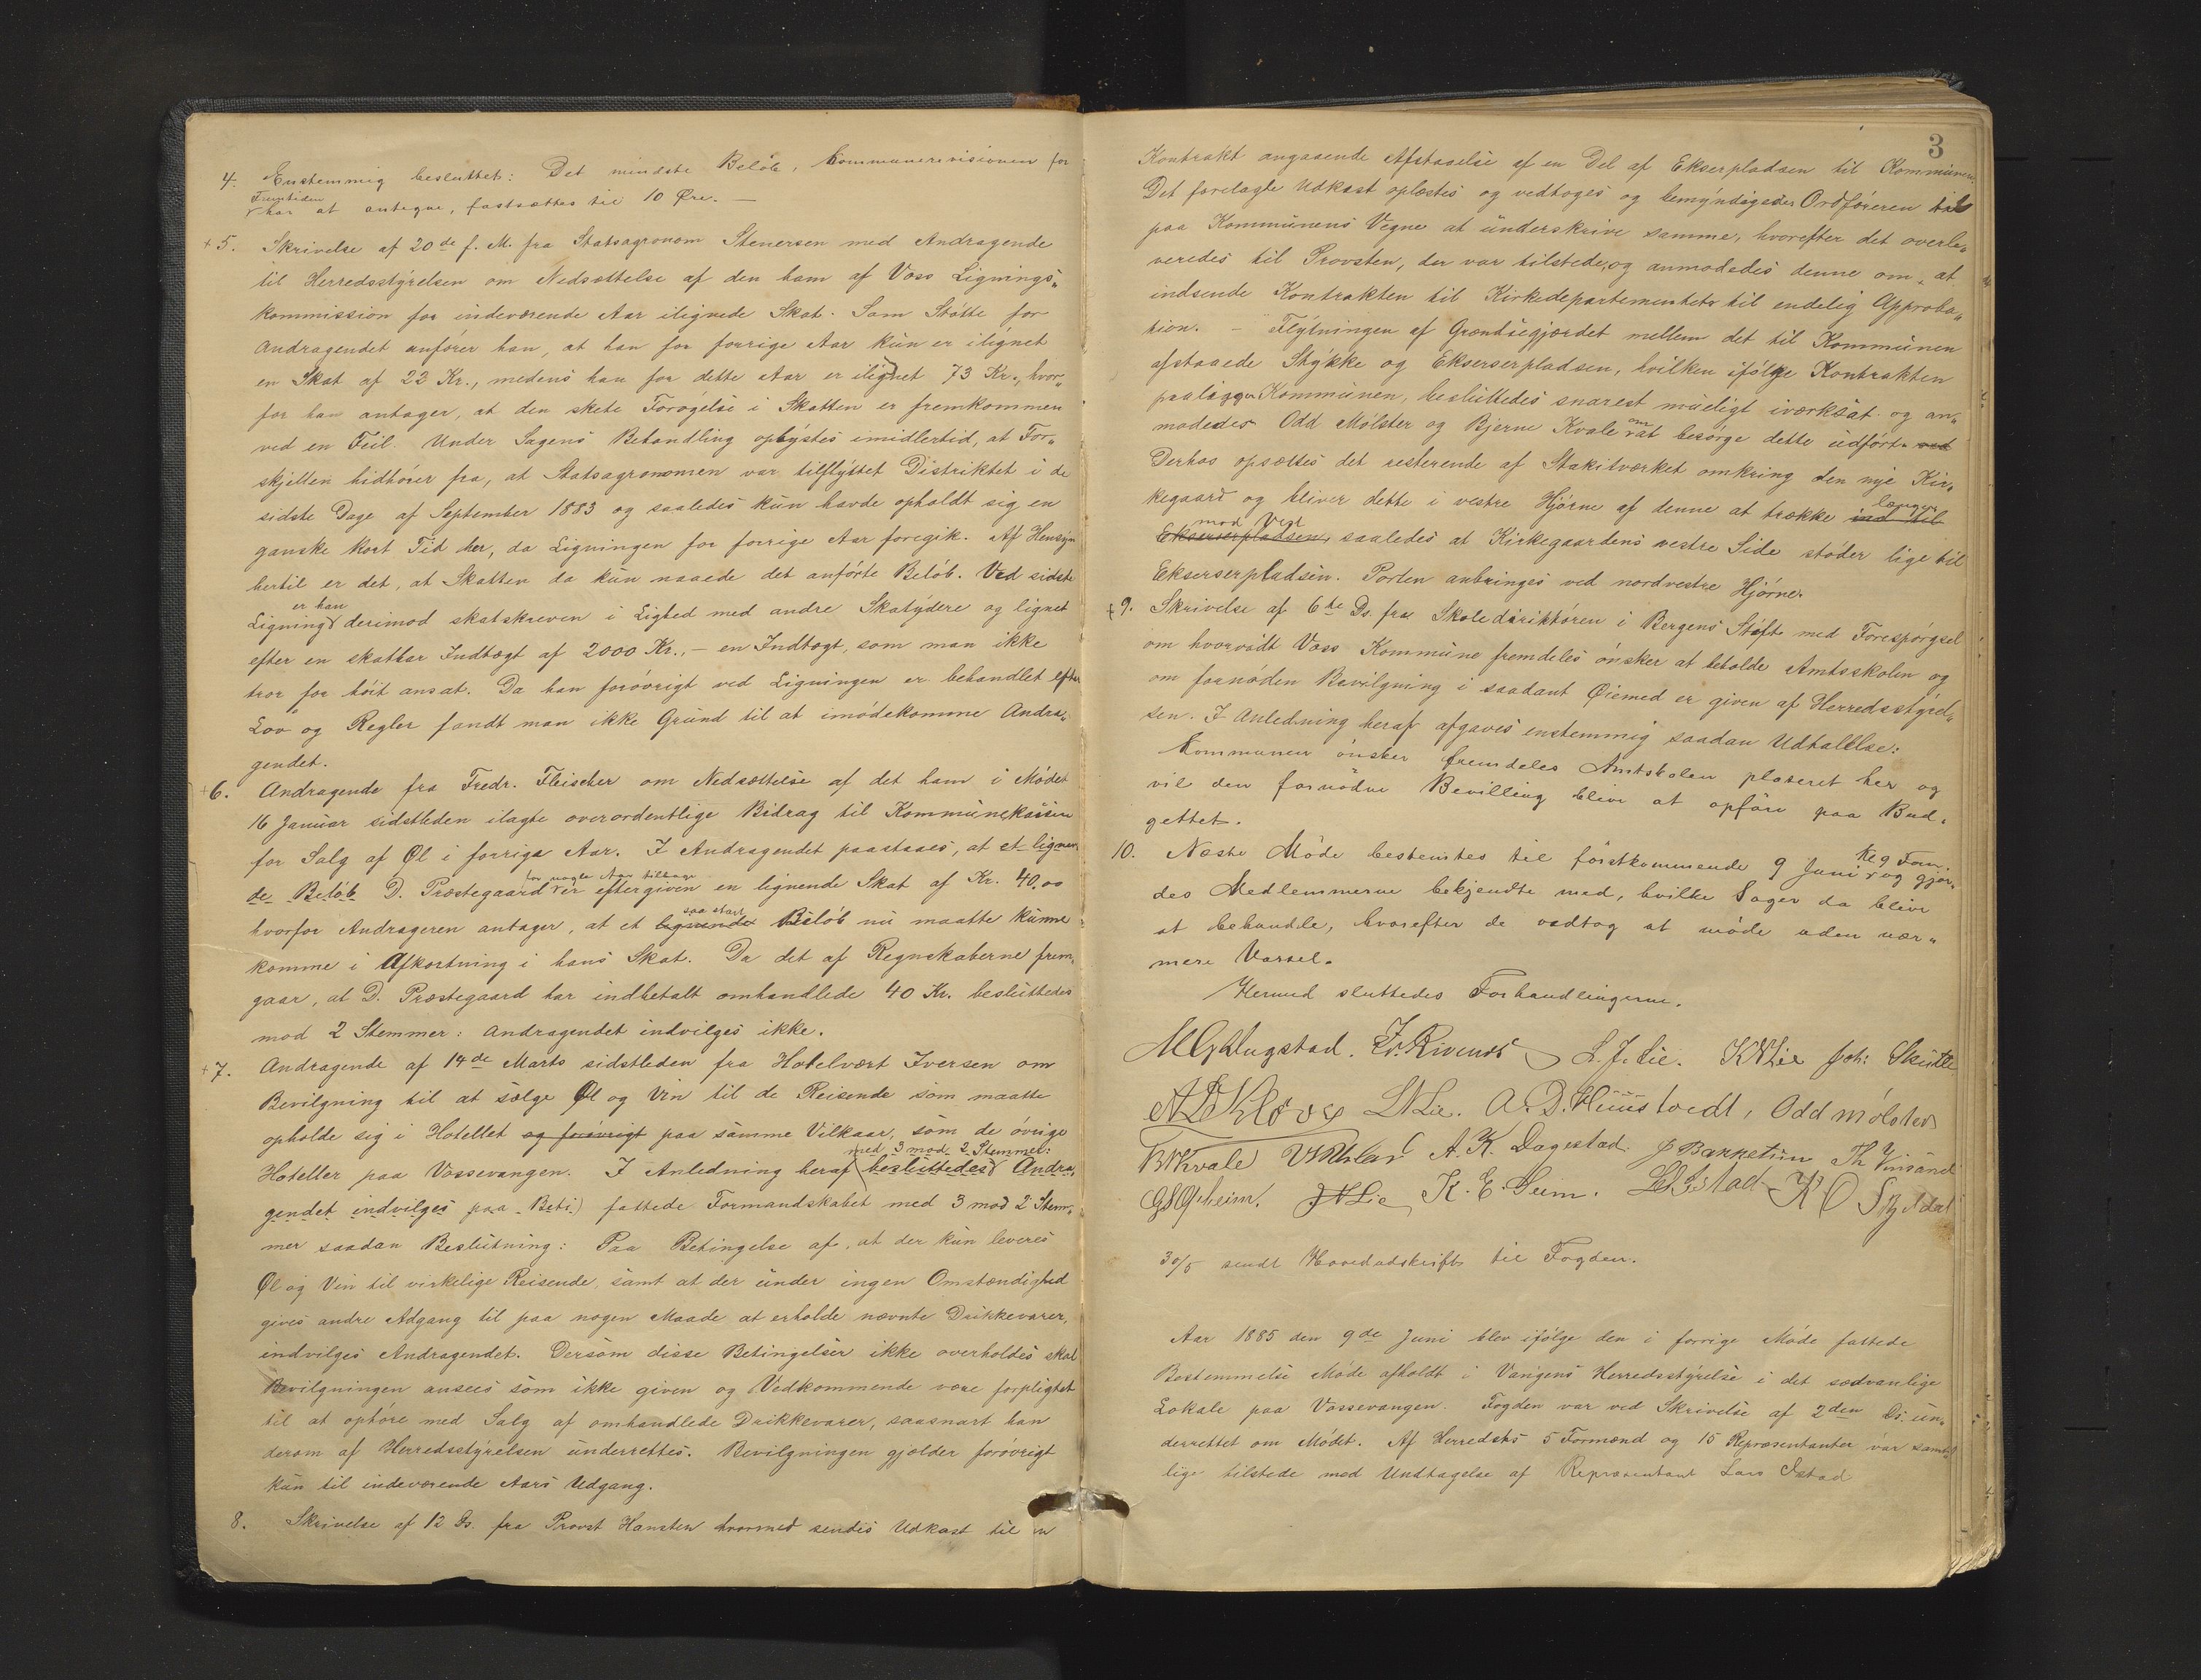 4. Enstemmig besluttet: Det mindste Beløb, Kommunerevisionen for
Fremtiden
har at antegne, fastsættes til 10 Øre. —
+ 5. Skrivelse af 20de f. M. fra Statsagronom Stenersen med Andragende
til Herredsstyrelsen om Nedsættelse af den ham af Voss Lignings„
kommission for indeværende Aar ilignede Skat. Som Støtte for
Andragendet anfører han, at han for forrige Aar kun er ilignet
en Skat af 22 Kr., medens han for dette Aar er ilignet 73 Kr., hvor„
for han antager, at den skete Forøgelse i Skatten er fremkommen
ved en Feil. Under Sagens Behandling oplystes imidlertid, at For„
skjellen hidhører fra, at Statsagronomen var tilflyttet Distriktet i de
sidste Dage af September 1883 og saaledes kun havde opholdt sig en
ganske kort Tid her, da Ligningen for forrige Aar foregik. Af Hensyn
hertil er det, at Skatten da kun naaede det anførte Beløb. Ved sidste
er han
Ligning derimod skatskreven i Lighed med andre Skatydere og lignet
efter en skatbar Indtægt af 2000 Kr., — en Indtægt, som man ikke
tror for høit ansat. Da han forøvrigt ved Ligningen er behandlet efter
Lov og Regler fandt man ikke Grund til at imødekomme Andra„
gendet.
+ 6. Andragende fra Fredr. Fleischer om Nedsættelse af det ham i Mødet
16 Januar sidstleden ilagte overordentlige Bidrag til Kommunekassen
for Salg af Øl i forrige Aar. I Andragendet paastaaes, at et lignen
for nogle Aar tilbage
de Beløb D. Præstegaard er eftergiven en lignende Skat af Kr. 40,00
saa stort
hvorfor Andrageren antager, at et lignende Beløb nu maatte kunne
komme i Afkortning i hans Skat. Da det af Regnskaberne frem„
gaar, at D. Præstegaard har indbetalt omhandlede 40 Kr. besluttedes
mod 2 Stemmer: Andragendet indvilges ikke.
+ 7. Andragende af 14de Marts sidstleden fra Hotelvært Iversen om
Bevilgning til at sælge Øl og Vin til de Reisende som maatte
opholde sig i Hotellet og forøvrigt paa samme Vilkaar, som de øvrige
med 3 mod 2 Stemmer:
Hoteller paa Vossevangen. I Anledning heraf besluttedes Andra„
gendet indvilges paa Beti) fattede Formandskabet med 3 mod 2 Stem„
mer saadan Beslutning: Paa Betingelse af, at der kun leveres
Øl og Vin til virkelige Reisende, samt at der under ingen Omstændighed
gives andre Adgang til paa nogen Maade at erholde nævnte Drikkevarer,
indvilges Andragendet. Dersom disse Betingelser ikke overholdes skal
Bevilgningen ansees som ikke given og Vedkommende være forpligtet
til at ophøre med Salg af omhandlede Drikkevarer, saasnart han
derom af Herredsstyrelsen underrettes. Bevilgningen gjælder forøvrigt
kun til indeværende Aars Udgang.
8. Skrivelse af 12 Ds. fra Provst Hansten hvormed sendes Udkast til en
3
Kontrakt angaaende Afstaaelse af en Del af Ekserpladsen til Kommunen.
Det forelagte Udkast oplæstes og vedtoges og bemyndigedes Ordføreren til
paa Kommunens Vegne at underskrive samme, hvorefter det overle„
veredes til Provsten, der var tilstede, og anmodedes denne om, at
indsende Kontrakten til Kirkedepartementet til endelig Approba„
tion. — Flytningen af Grændsegjærdet mellem det til Kommunen
afstaaede Stykke og Ekserserpladsen, hvilken ifølge Kontrakten
paaligger Kommunen, besluttedes snarest mueligt iværksat og an„
modedes Odd Mølster og Bjerne Kvale om at besørge dette udført. ved
Derhos opsættes det resterende af Stakitværket omkring den nye Kir„
kegaard og bliver dette i vestre Hjørne af denne at trække ind til længer
mod Vest
Ekserserpladsen, saaledes at Kirkegaardens vestre Side støder lige til
Ekserserpladsen. Porten anbringes ved nordvestre Hjørne.
+ 9. Skrivelse af 6te Ds. fra Skoledirektøren i Bergens Stift med Forespørgsel
om hvorvidt Voss Kommune fremdeles ønsker at beholde Amtsskolen og
om fornøden Bevilgning i saadant Øiemed er given af Herredsstyrel„
sen. I Anledning heraf afgaves enstemmig saadan Udtalelse:
Kommunen ønsker fremdeles Amtskolen plaseret her og
vil den fornødne Bevilling blive at opføre paa Bud„
gettet.
10. Næste Møde bestemtes til førstkommende 9 Juni Kl 9 Form. og gjør„
des Medlemmerne bekjendte med, hvilke Sager da blive
at behandle, hvorefter de vedtog at møde uden nær„
mere Varsel.
Hermed sluttedes Forhandlingerne.
L. J. Lie. K N Lie Joh: Skutle
A Kløve L N Lie. A. D. Hüüstvedt, Odd Mølster
B Kvale A. K. Dagestad. Th Vinsand
K. E. Seim.
30/5 sendt Hovedudskrift til Fogden.
Aar 1885 den 9de Juni blev ifølge den i forrige Møde fattede
Bestemmelse Møde afholdt i Vangens Herredsstyrelse i det sædvanlige
Lokale paa Vossevangen. Fogden var ved Skrivelse af 2den Ds. un„
derrettet om Mødet. Af Herredets 5 Formænd og 15 Repræsentanter var samt„
lige tilstede med Undtagelse af Repræsentant Lars Istad